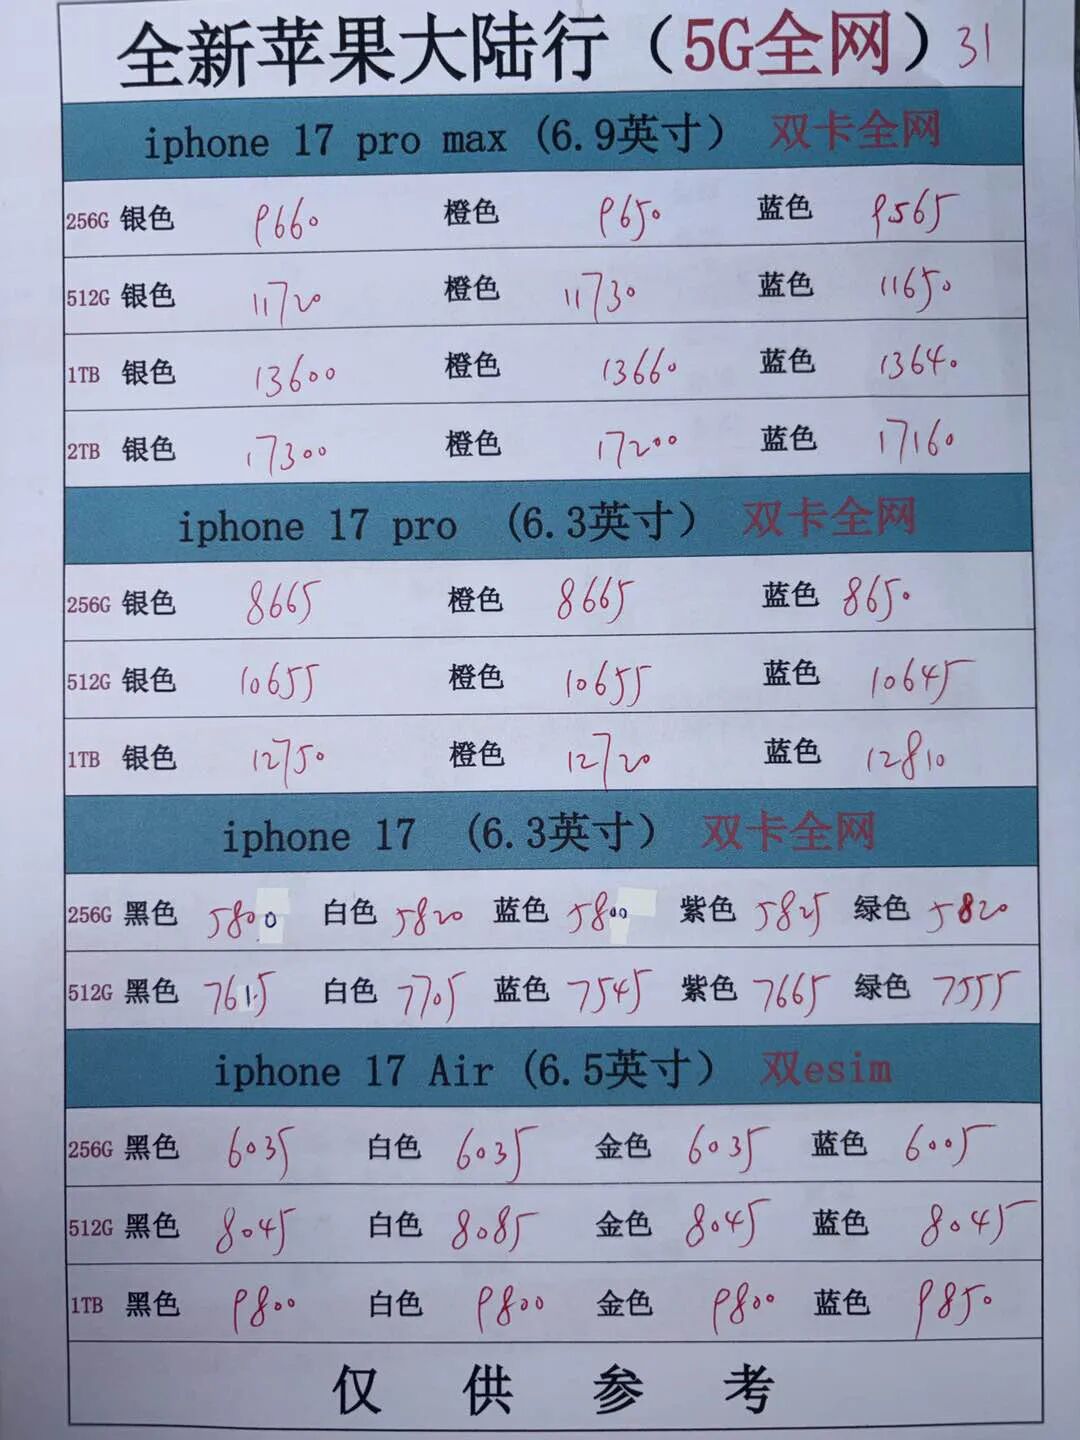 全新苹果大陆行（5G全网）31
iphone 17 pro max (6.9英寸） 双卡全网
256G 银色 9660 橙色 9650 蓝色 9565
512G 银色 11720 橙色 11730 蓝色 11650
1TB 银色 13600 橙色 13660 蓝色 13640
2TB 银色 17300 橙色 17200 蓝色 17160
iphone 17 pro (6.3英寸） 双卡全网
256G 银色 8665 橙色 8665 蓝色 8650
512G 银色 10655 橙色 10655 蓝色 10645
1TB 银色 12750 橙色 12720 蓝色 12810
iphone 17 (6.3英寸） 双卡全网
256G 黑色 5800 白色 5820 蓝色 5800 紫色 5825 绿色 5820
512G 黑色 7615 白色 7705 蓝色 7545 紫色 7665 绿色 7555
iphone 17 Air (6.5英寸） 双esim
256G 黑色 6035 白色 6035 金色 6035 蓝色 6005
512G 黑色 8045 白色 8085 金色 8045 蓝色 8045
1TB 黑色 9800 白色 9800 金色 9800 蓝色 9850
仅供参考